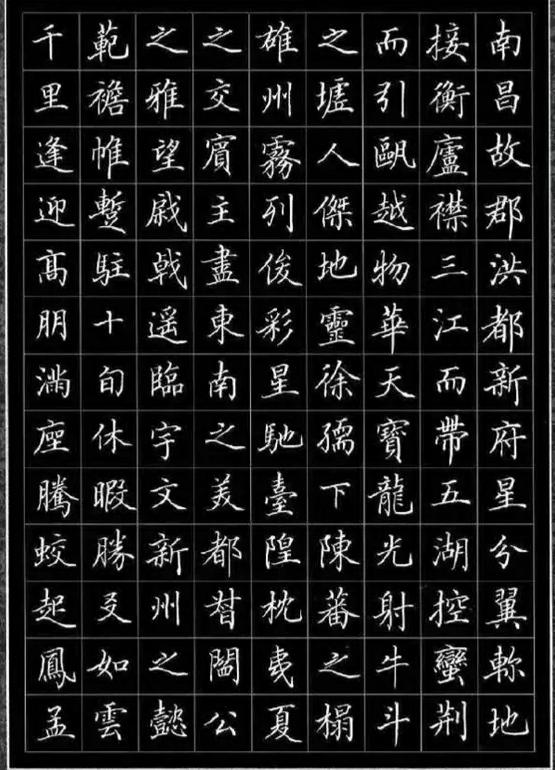 南昌故郡洪都新府星分翼軫地
接衡廬襟三江而帶五湖控蠻荆
而引甌越物華天寶龍光射牛斗
之墟人傑地靈徐孺下陳蕃之榻
雄州霧列俊彩星馳臺隍枕夷夏
之交賓主盡東南之美都督閻公
之雅望戚戟遥臨宇文新州之懿
範襜帷暫駐十旬休暇勝友如雲
千里逢迎髙朋滿座騰蛟起鳳孟